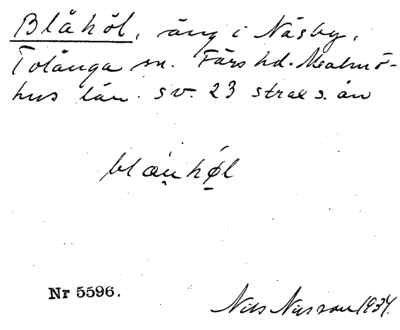 Blåhöl, äng i Näsby,
Tolånga sn. Färs hd. Malmö-
hus län. sv. 23 strax s. ån
blau̯hø̱l
Nr 5596.
Nils Nilsson 1934.